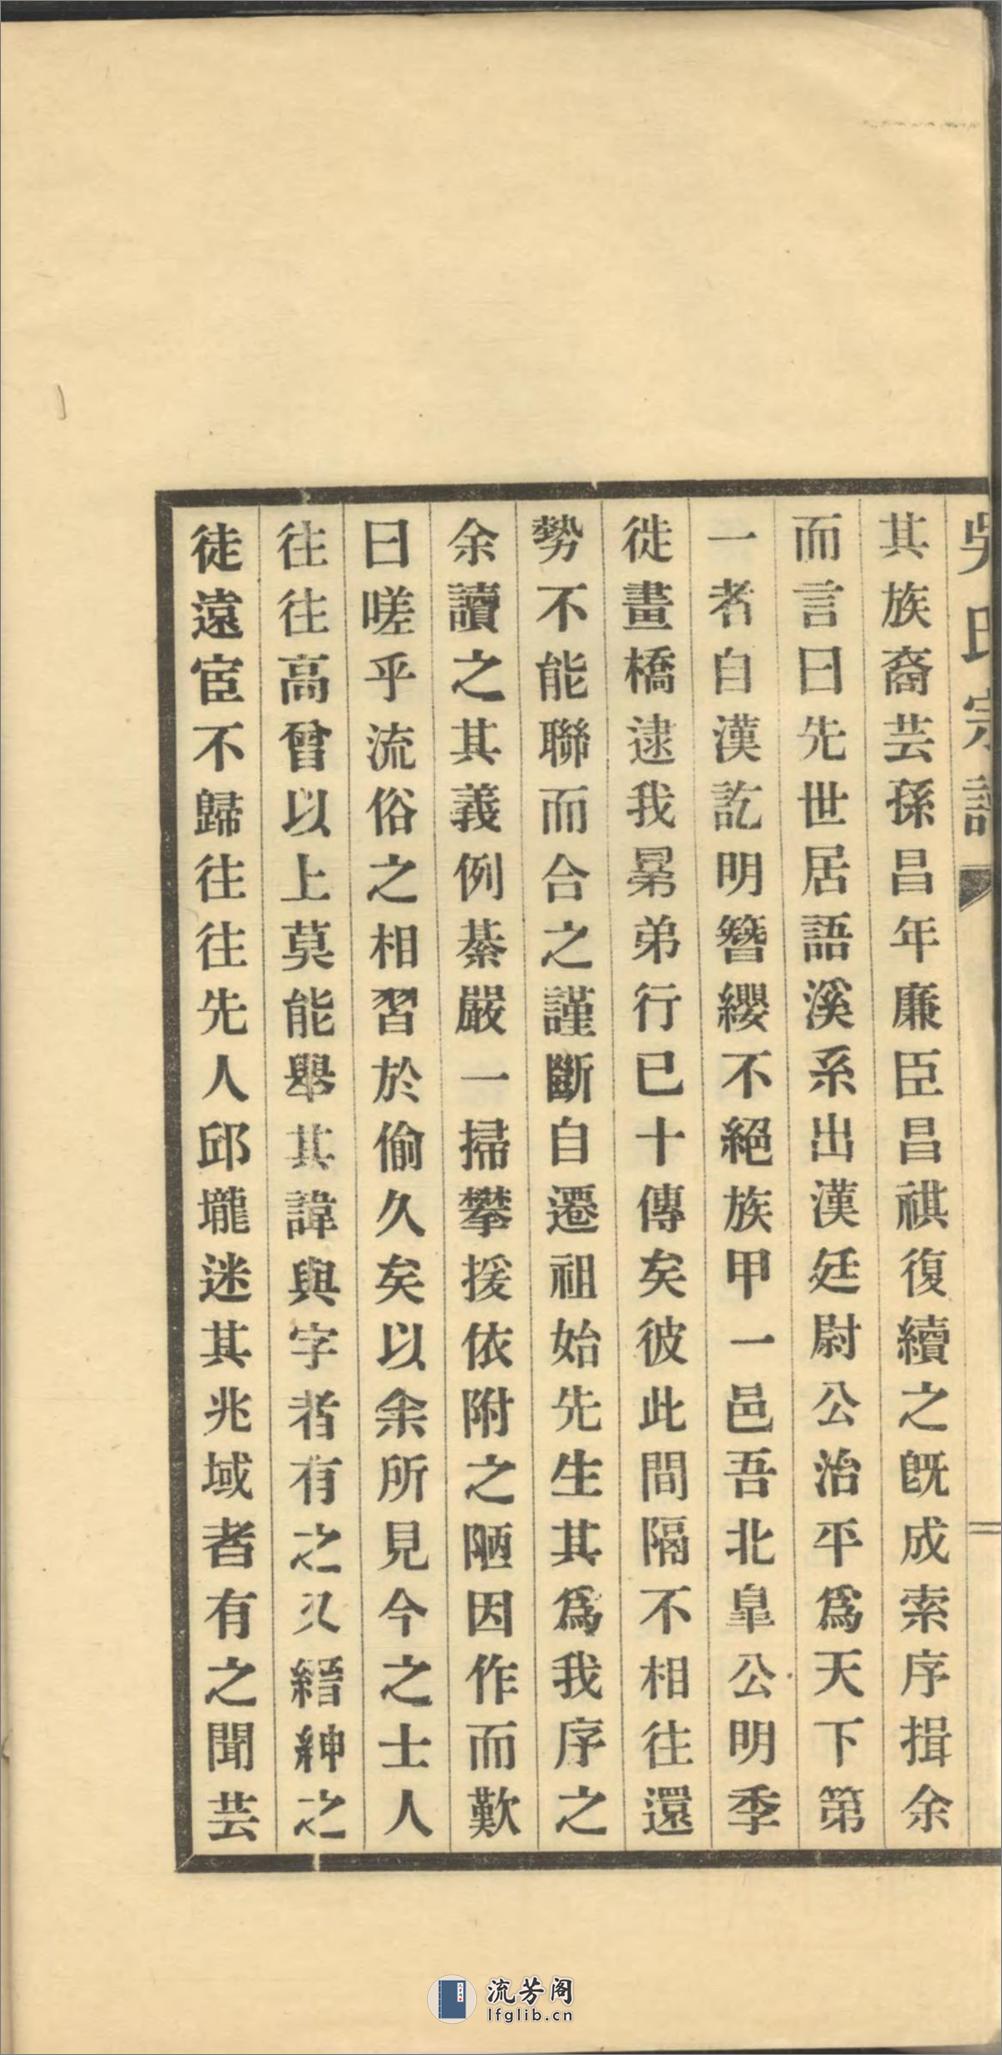 吳氏宗譜
其族裔芸孫昌年廉臣昌祺復續之旣成索序揖余
而言曰先世居語溪系出漢廷尉公治平爲天下第
一者自漢訖明簪纓不絕族甲一邑吾北皐公明季
徙畫橋逮我晜弟行已十傳矣彼此間隔不相往還
勢不能聯而合之謹斷自遷祖始先生其爲我序之
余讀之其義例綦嚴一掃攀援依附之陋因作而歎
曰嗟乎流俗之相習於偷久矣以余所見今之士人
往往高曾以上莫能舉其諱與字者有之又縉紳之
徒遠宦不歸往往先人邱壠迷其兆域者有之聞芸
流芳阁
lfglib.cn